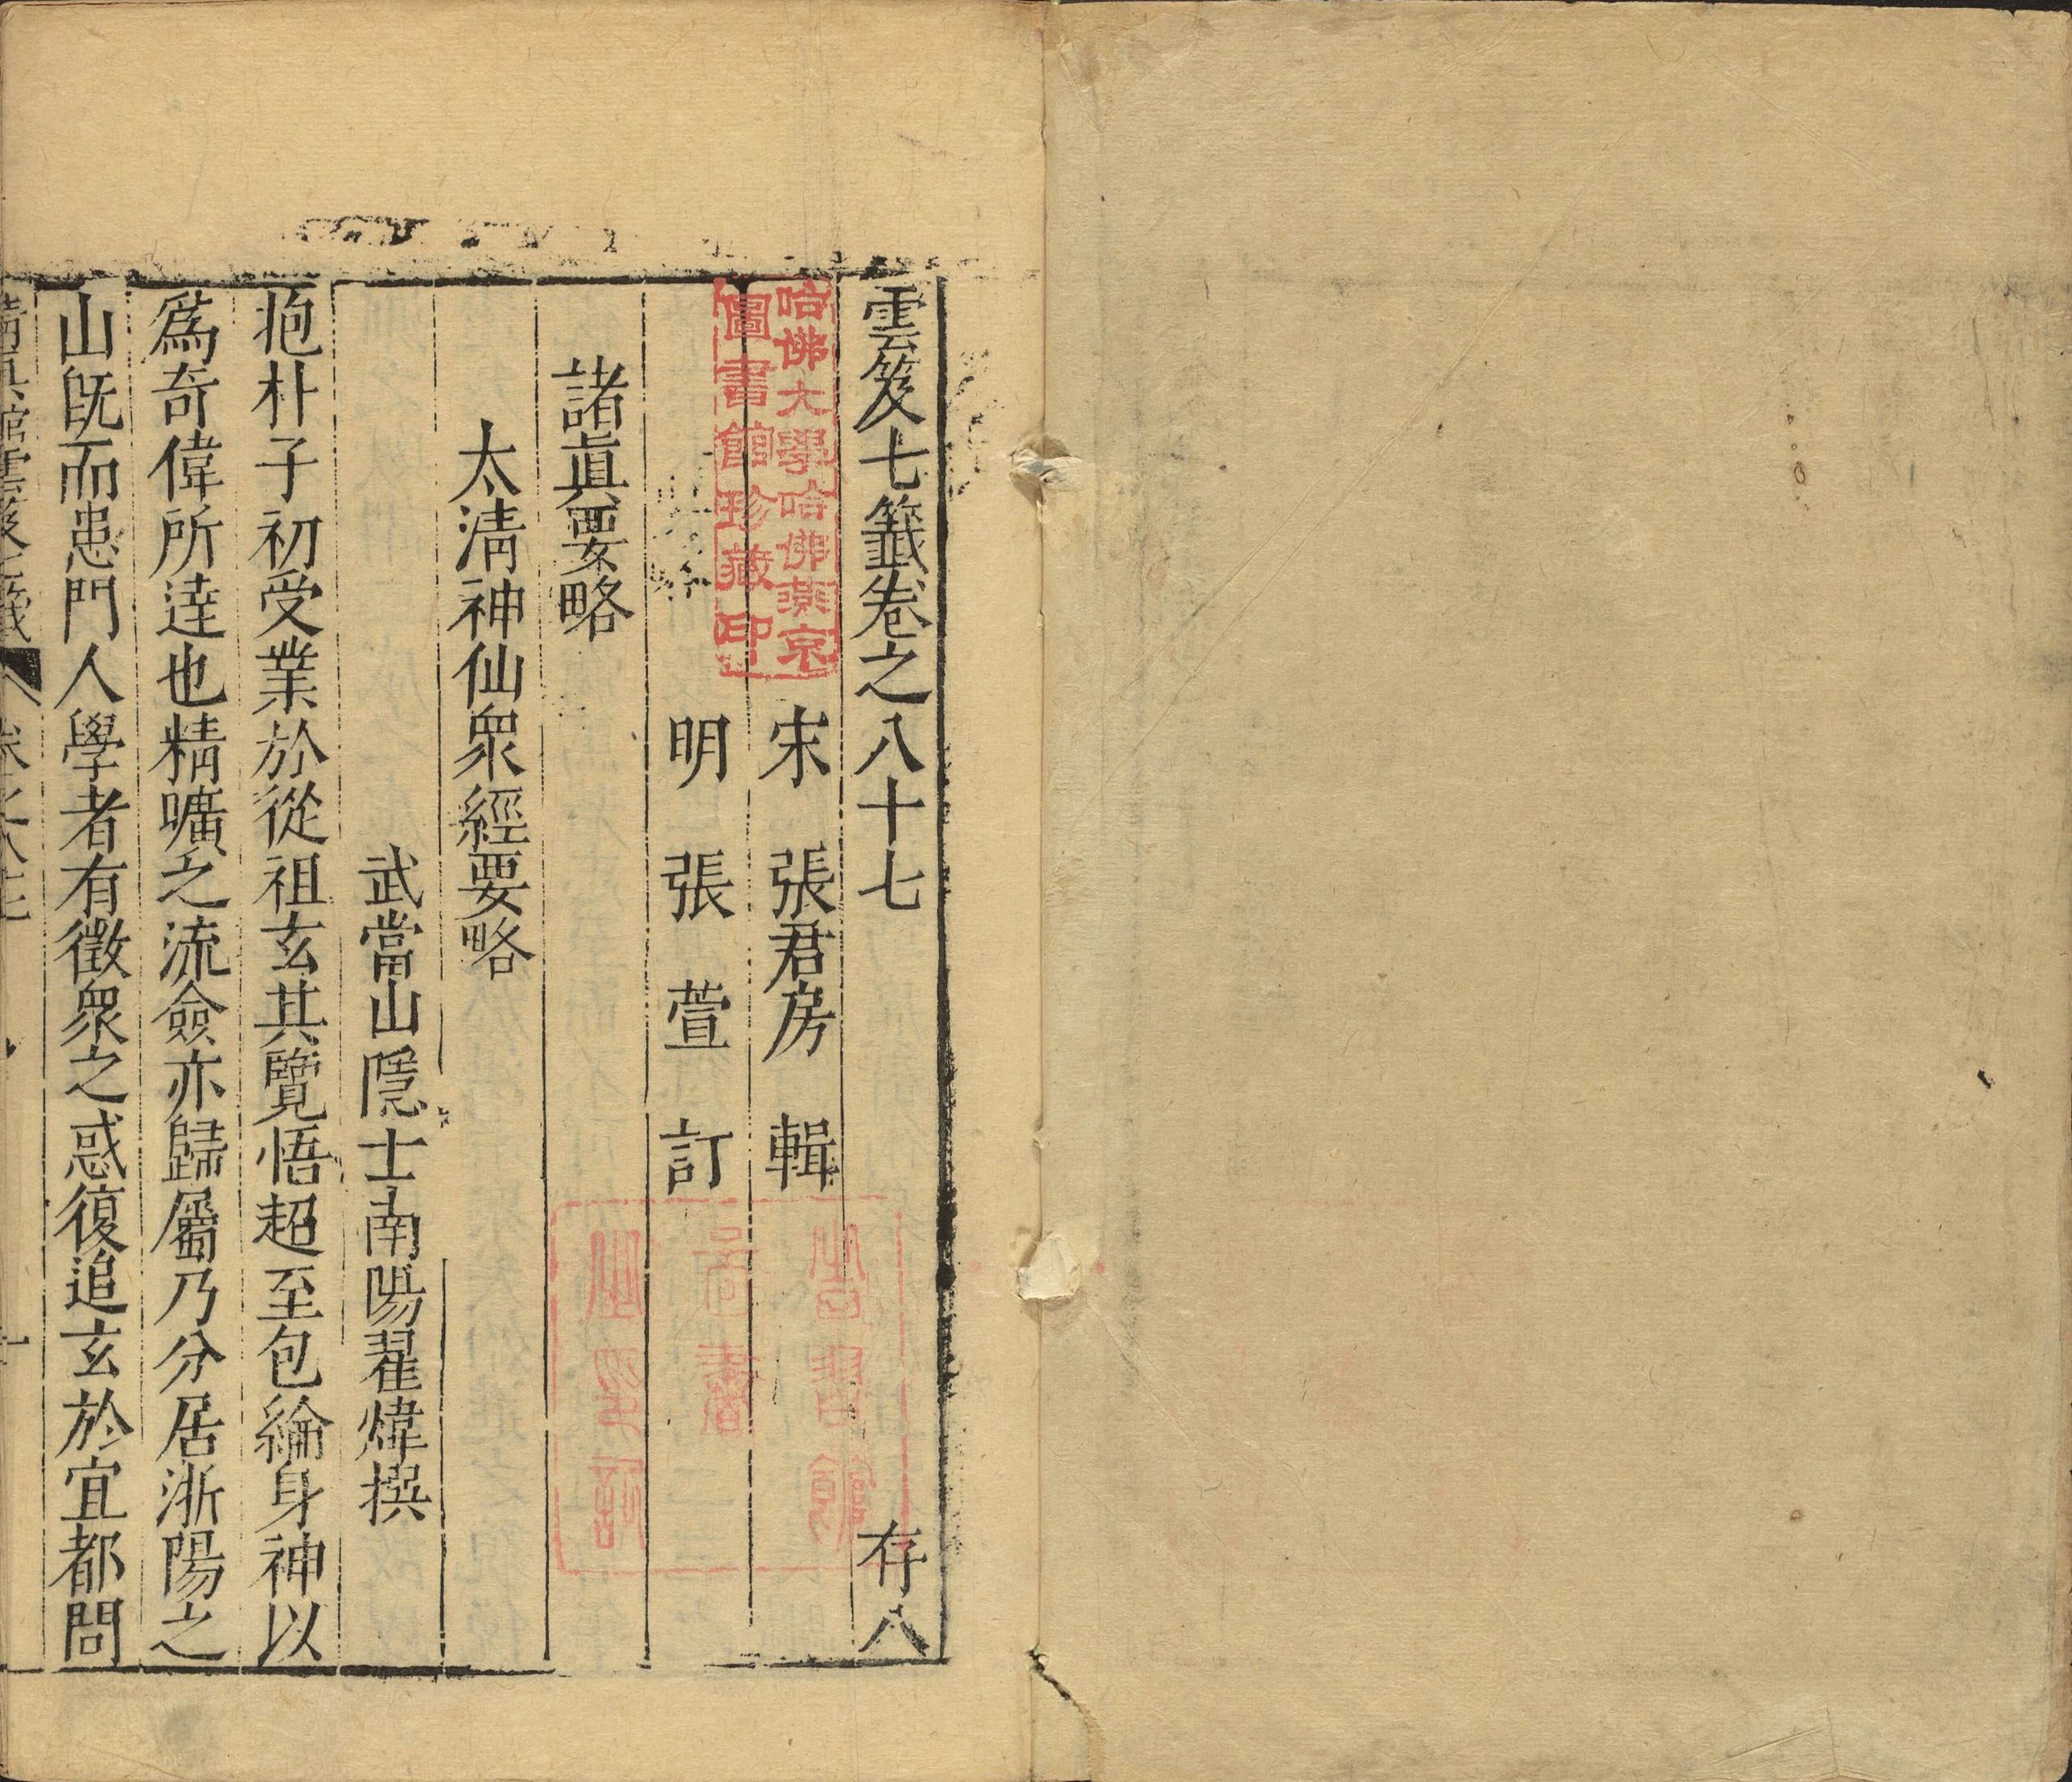 雲笈七籤卷之八十七 存八
宋 張君房 輯
明 張萱 訂
諸眞要略
太清神仙眾經要略
武當山隱士南陽翟煒撰
抱朴子初受業於從祖玄其覽悟超至包綸身神以
爲奇偉所達也精嚝之流僉亦歸屬乃分居浙陽之
山旣而患門人學者有徵眾之惑復追玄於宜都問
哈佛大學哈佛燕京
圖書館珍藏印